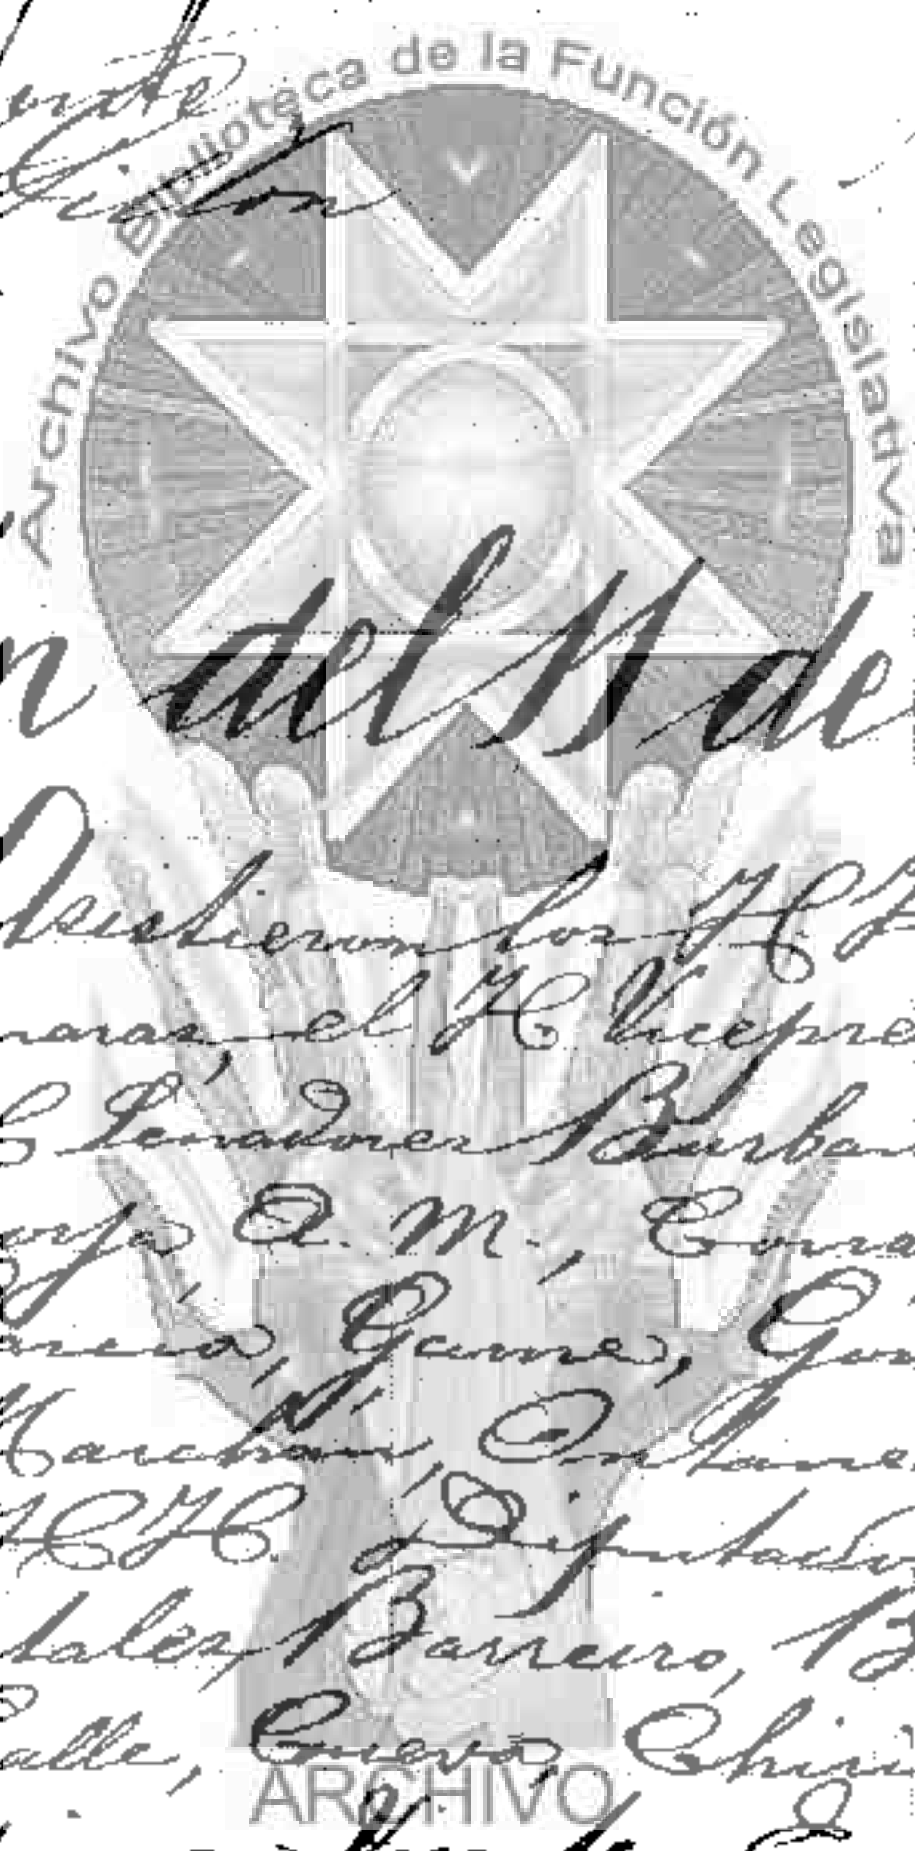 Archivo Biblioteca de la Función Legislativa
n del 11 de
Asistieron los HH
maras, el H Vicepre
Senadores Burba
orja, A. M.,
arcia, Game, Gon
Marchan, Ontane
HH. Diputado
tales, Barreiro, B
alle, Cueva, Chiri
ARCHIVO